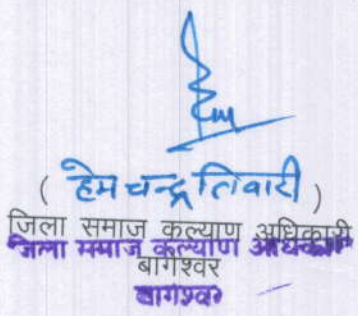 ( हेम चन्द्र तिवारी )
जिला समाज कल्याण अधिकारी
जिला समाज कल्याण अधिकारी
बागेश्वर
बागेश्वर